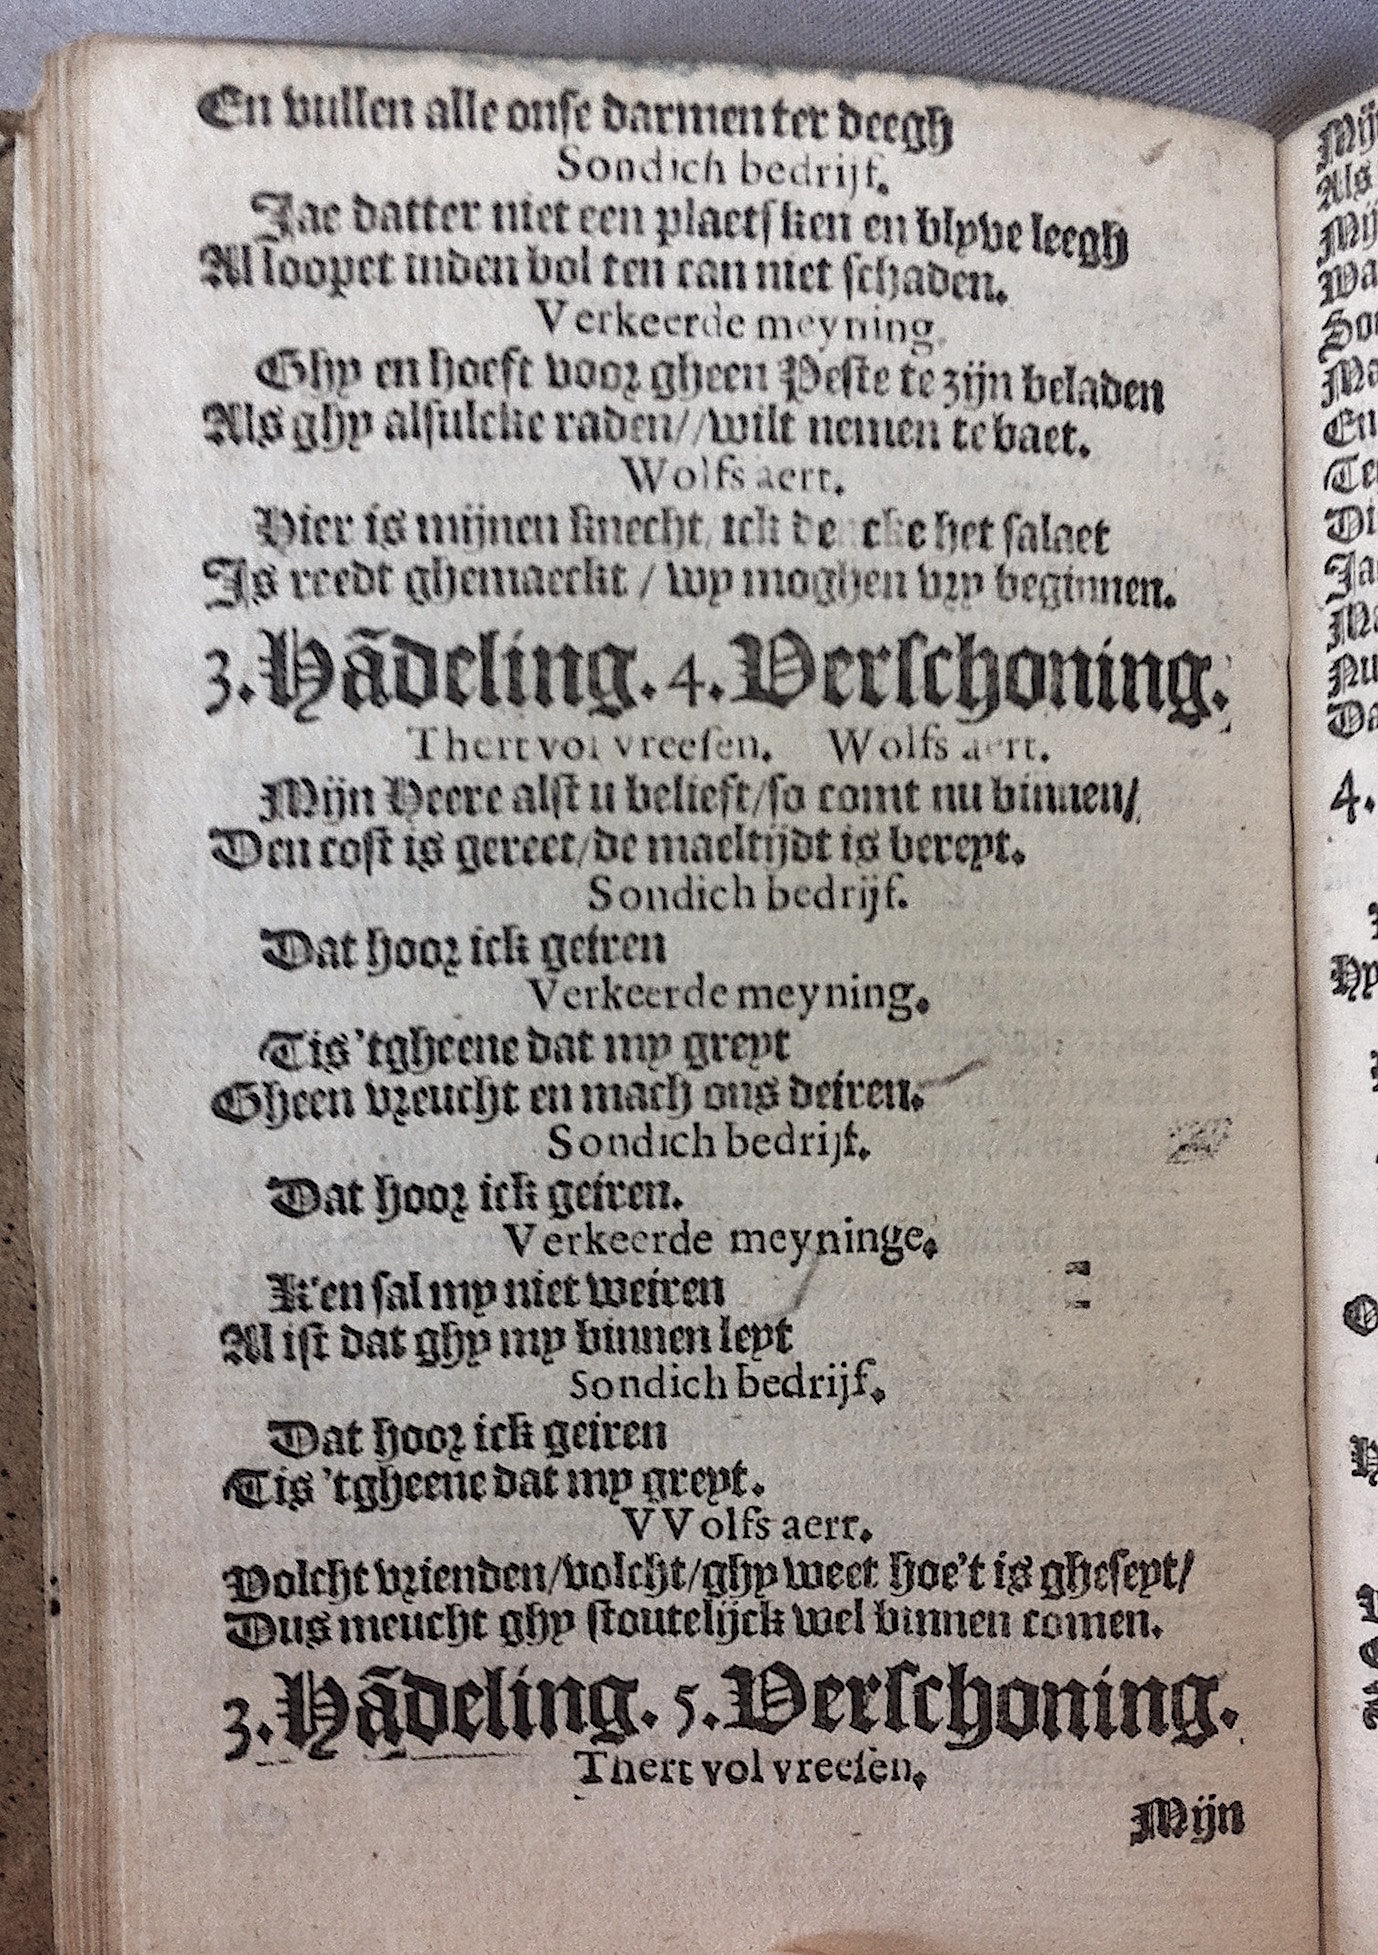 En vullen alle onse darmen ter deegh
Sondich bedrijf.
Jae datter niet een plaetsken en blyve leegh
Al loopet inden bol ten can niet schaden.
Verkeerde meyning.
Ghy en hoeft voor gheen Peste te zijn beladen
Als ghy alsulcke raden//wilt nemen te baet.
Wolfs aert.
Hier is mijnen knecht, ick dencke het salaet
Is reedt ghemaeckt / wy moghen vry beginnen.
3. Hãdeling. 4. Verschoning.
Thert vol vreesen. Wolfs aert.
Mijn Heere alst u belieft/so comt nu binnen/
Den cost is gereet/de maeltijdt is bereyt.
Sondich bedrijf.
Dat hoor ick geiren
Verkeerde meyning.
Tis 'tgheene dat my greyt
Gheen vreucht en mach ons deiren.
Sondich bedrijf.
Dat hoor ick geiren.
Verkeerde meyninge.
K'en sal my niet weiren
Al ist dat ghy my binnen leyt
Sondich bedrijf.
Dat hoor ick geiren
Tis 'tgheene dat my greyt.
VVolfs aert.
Volcht vrienden/volcht/ghy weet hoe't is gheseyt/
Dus meucht ghy stoutelijck wel binnen comen.
3. Hãdeling. 5. Verschoning.
Thert vol vreesen.
Mijn
Als
En
4.